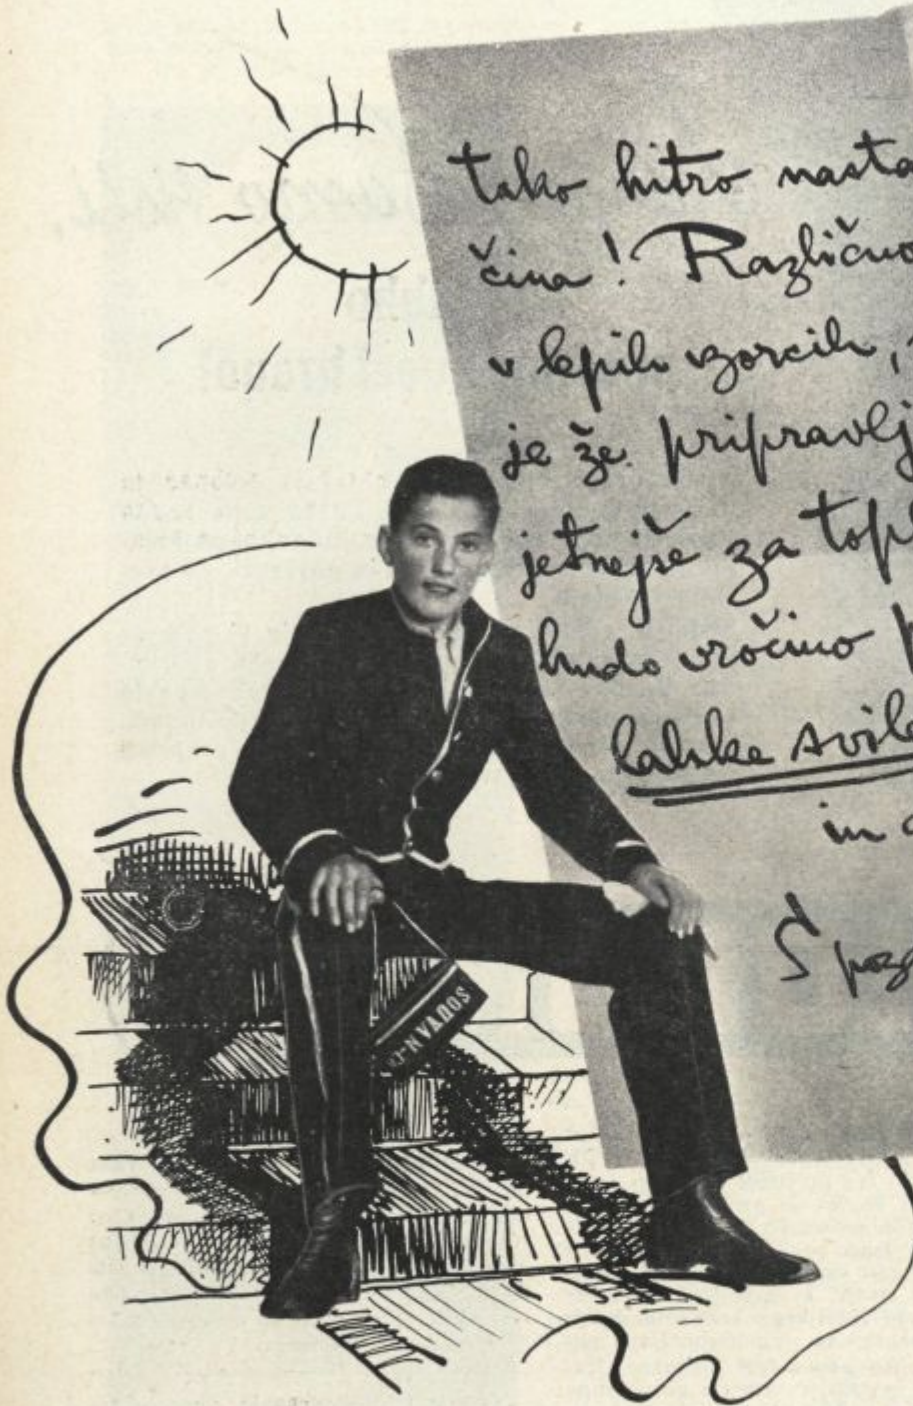 tako hitro nasta
čina! Različno
v lepih vzorcih,
je že pripravlj
jetnejše za topl
hudo vročino p
lahke svile
in
S poz
NVADOS